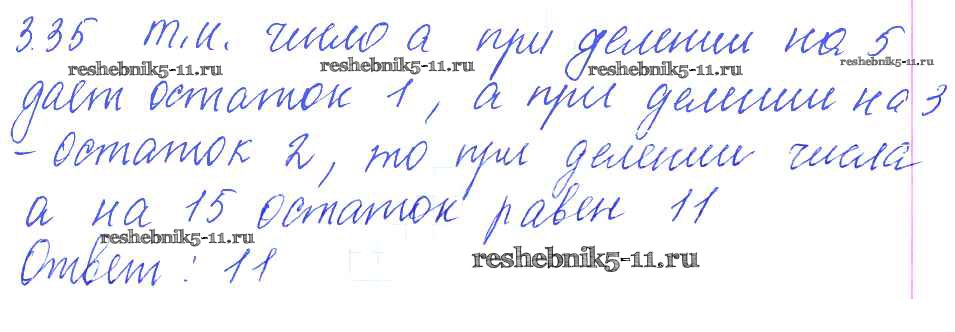 3.35 т.к. число а при делении на 5
reshebnik5-11.ru reshebnik5-11.ru reshebnik5-11.ru reshebnik5-11.ru
дает остаток 1, а при делении на 3
- остаток 2, то при делении числа
а на 15 остаток равен 11
reshebnik5-11.ru
Ответ: 11
reshebnik5-11.ru